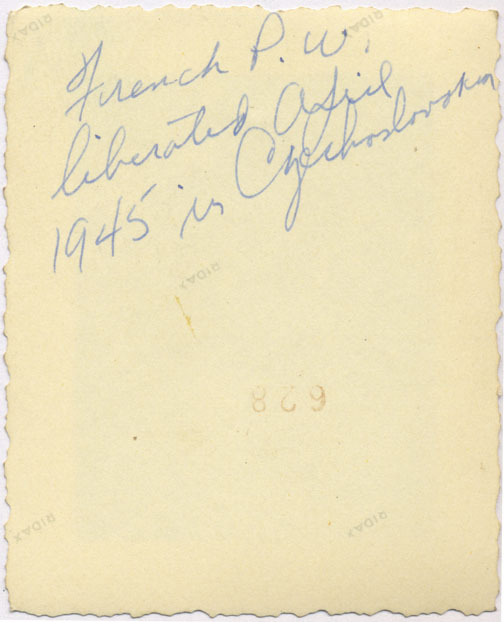 RIDAX
RIDAX
French P.W.
liberated April
1945 in Czechoslovakia
RIDAX
628
RIDAX
RIDAX